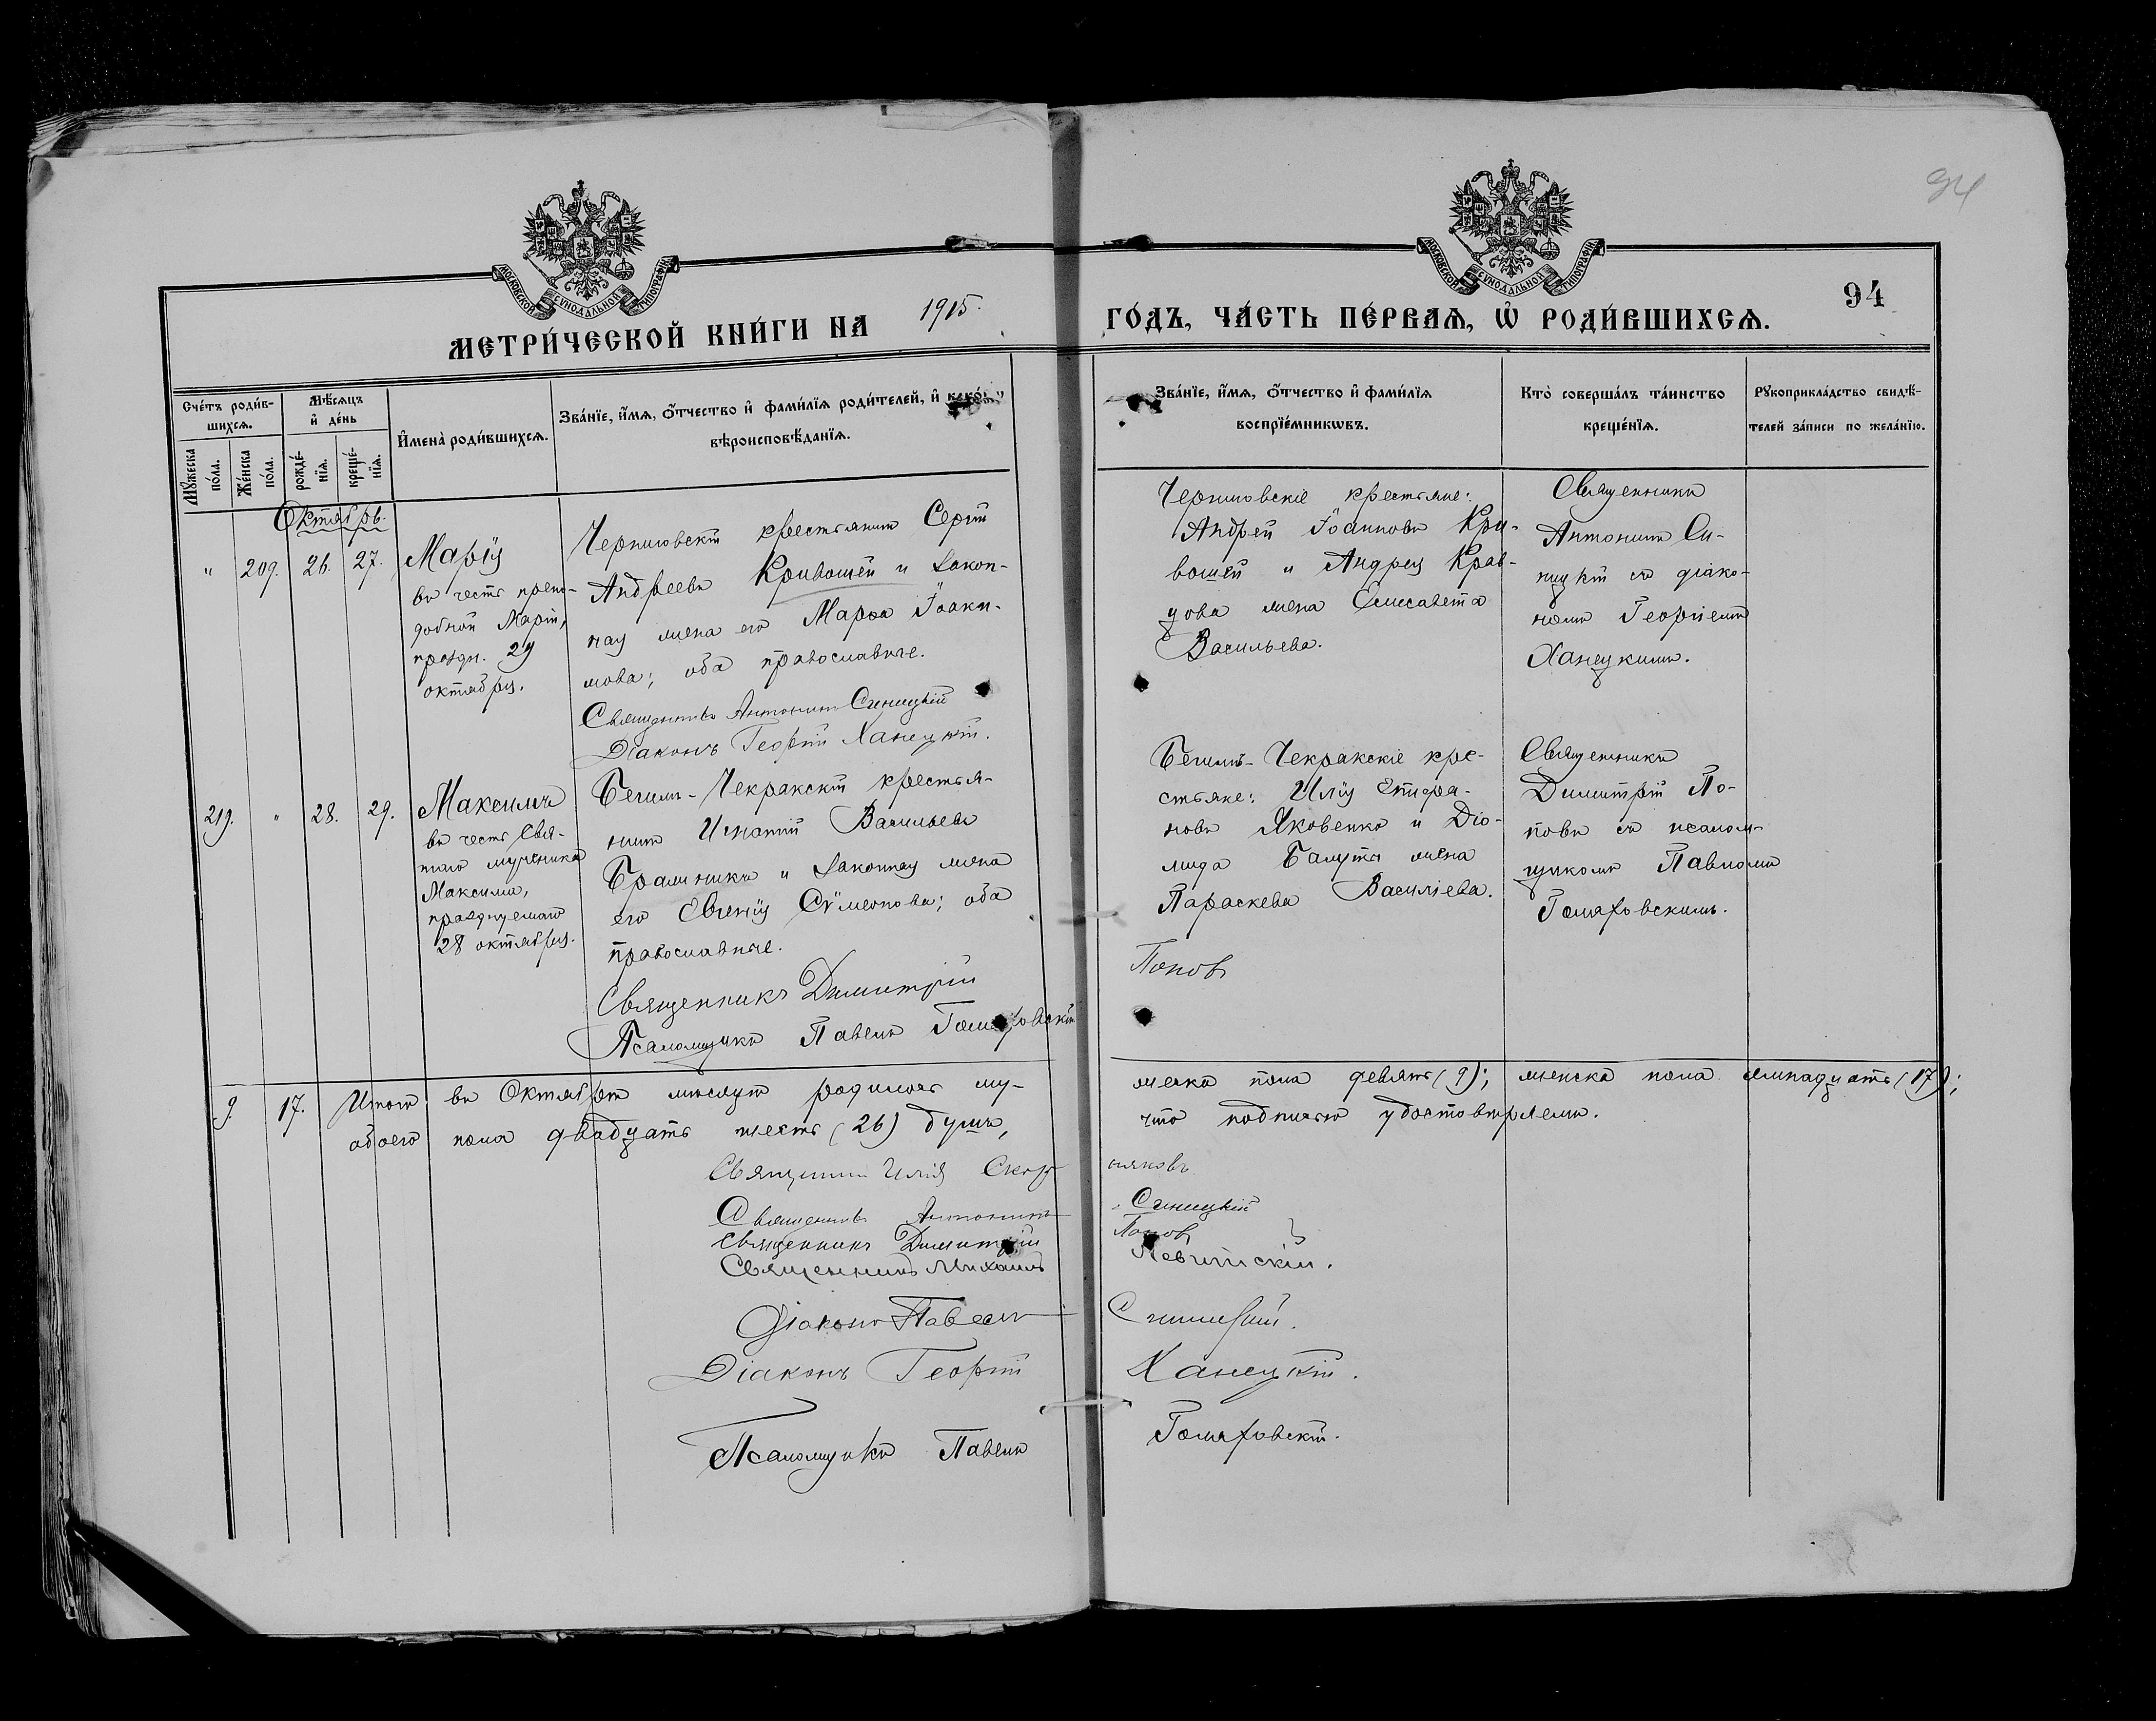 94
МОСКОВСКОЙ СѴНОДАЛЬНОЙ ТИПОГРАФІИ
МОСКОВСКОЙ СѴНОДАЛЬНОЙ ТИПОГРАФІИ
94
МЕТРИ́ЧЕСКОЙ КНИ́ГИ НА 1915. ГО́ДЪ, ЧА́СТЬ ПЕ́РВАѦ, Ѿ РОДИ́ВШИХСѦ.
Сче́тъ роди́в-
шихсѧ.
Му́жеска по́ла.
Же́нска по́ла.
Мѣ́сяцъ и҆ де́нь
рожде́-нїѧ.
креще́-нїѧ.
И҆мена̀ роди́вшихсѧ.
Зва́нїе, и҆́мѧ, ѻ҆́тчество и҆ фами́лїѧ роди́телей, и҆ како́гѡ
вѣроисповѣ́данїѧ.
Зва́нїе, и҆́мѧ, ѻ҆́тчество и҆ фами́лїѧ
воспрїе́мникѡвъ.
Кто̀ соверша́лъ та́инство
креще́нїѧ.
Рꙋкоприкла́дство свидѣ́-
телей за́писи по жела́нїю.
Октябрь.
" 209. 26. 27.
Марія
въ честь препо-
добной Маріи,
праздн. 29
октября.
Черниговскій крестьянинъ Сергій
Андреевъ Кривошей и закон-
ная жена его Марѳа Іоаки-
мова; оба православные.
Священникъ Антонинъ Синицкій
Діаконъ Георгій Ханецкій.
Черниговскіе крестьяне:
Андрей Іоанновъ Кри-
вошей и Андрея Крав-
цова жена Елисавета
Васильева.
Священникъ
Антонинъ Си-
ницкій съ діако-
номъ Георгіемъ
Ханецкимъ.
219. " 28. 29.
Максимъ
въ честь Свя-
таго мученика
Максима,
празднуемаго
28 октября.
Бегимъ-Чекракскій крестья-
нинъ Игнатій Васильевъ
Бражникъ и законная жена
его Евгенія Сѵмеонова; оба
православные.
Священникъ Димитрій Попов
Псаломщикъ Павелъ Гомяровскій
Бегимъ-Чекракскіе кре-
стьяне: Илія Епифа-
новъ Яковенко и Діо-
мида Балута жена
Параскева Василіева.
Священникъ
Димитрій По-
повъ съ псалом-
щикомъ Павломъ
Гомяровскимъ.
9. 17. Итого въ Октябрѣ мѣсяцѣ родилось му-жеска пола девять (9); женска пола семнадцать (17);
обоего пола двадцать шесть (26) душъ, что подписью удостовѣряемъ.
Священникъ Илія
Священникъ Антонинъ Синицкій
Священникъ Димитрій Попов
Священникъ Михаилъ Левитскій.
Діаконъ Павелъ
Діаконъ Георгій Ханецкій.
Псаломщикъ Павелъ Гомяровскій.